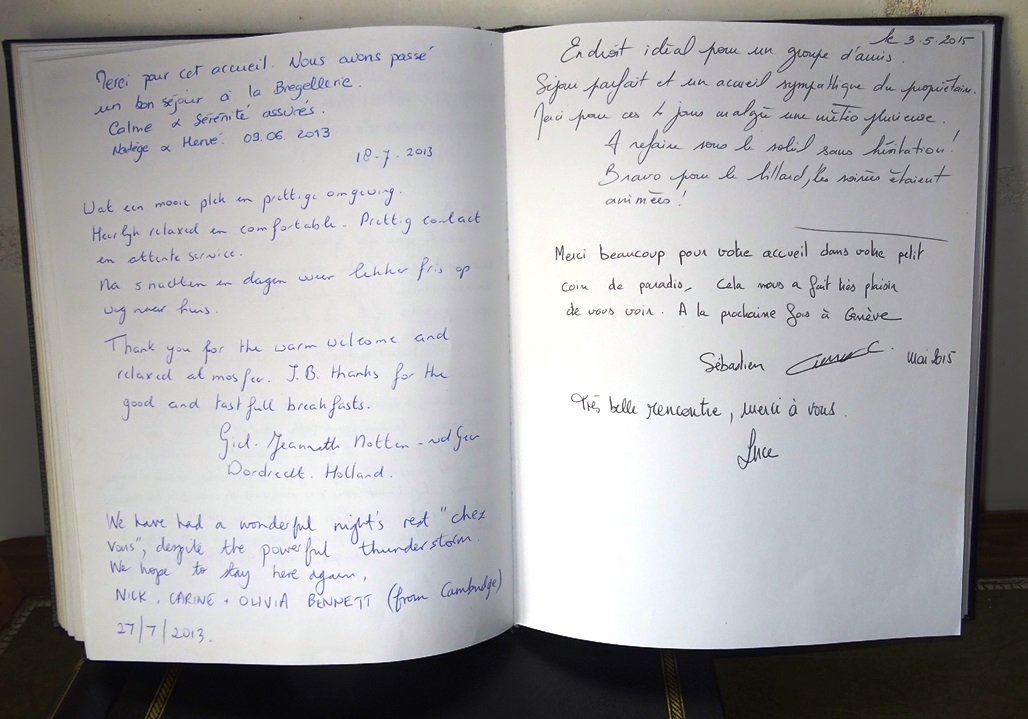 Merci pour cet accueil. Nous avons passé
un bon séjour à la Bregellerie.
Calme & Sérénité assurés.
Nadège & Hervé. 09.06.2013
18-7.2013
Wat een mooie plek en prettige omgeving.
Heerlijk relaxed en comfortable. Prettig contact
en attente service.
Na 5 nachten en dagen weer lekker fris op
weg naar huis.
Thank you for the warm welcome and
relaxed atmosfeer. J.B. thanks for the
good and tastfull breakfasts.
Giel. Jeanneth Notten -
Dordrecht. Holland.
We have had a wonderful night's rest "chez
vous", despite the powerful thunderstorm.
We hope to stay here again,
NICK, CARINE + OLIVIA BENNETT (from Cambridge)
27/7/2013.
le 3.5.2015
Endroit idéal pour un groupe d'amis.
Séjour parfait et un accueil sympathique du propriétaire.
Merci pour ces 4 jours malgré une météo pluvieuse.
A refaire sous le soleil sans hésitation!
Bravo pour le billard, les soirées étaient
animées!
Merci beaucoup pour votre accueil dans votre petit
coin de paradis, Cela nous a fait très plaisir
de vous voir. A la prochaine fois à Genève
Sébastien mai 2015
Très belle rencontre, merci à vous.
Luce